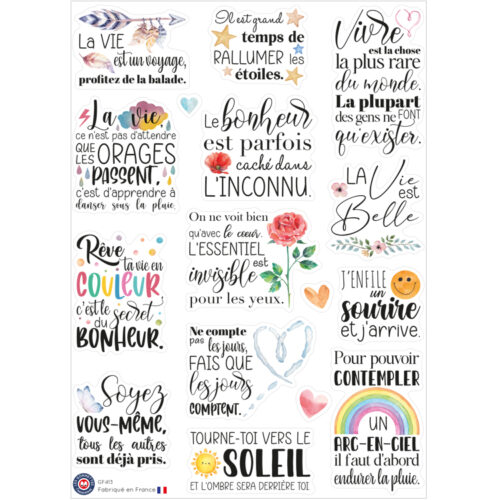 LA VIE
est un voyage,
profitez de la balade.
Il est grand
temps de
RALLUMER les
étoiles.
Vivre
est la chose
la plus rare
du monde.
La plupart
des gens ne FONT
qu'exister.
La vie,
ce n'est pas d'attendre
QUE
LES ORAGES
PASSENT,
c'est d'apprendre à
danser sous la pluie.
Le bonheur
est parfois
caché dans
L'INCONNU.
LA Vie
est
Belle
On ne voit bien
qu'avec le coeur.
L'ESSENTIEL
est
invisible
pour les yeux.
Rêve
ta vie en
COULEUR
c'est le secret
du
BONHEUR.
J'ENFILE
un
sourire
et j'arrive.
Ne compte
pas les jours,
FAIS QUE
les jours
COMPTENT.
Pour pouvoir
CONTEMPLER
UN
ARC-EN-CIEL
il faut d'abord
endurer la pluie.
Soyez
VOUS-MÊME,
tous les autres
sont déjà pris.
TOURNE-TOI VERS LE
SOLEIL
ET L'OMBRE SERA DERRIÈRE TOI
GF413
Fabriqué en France